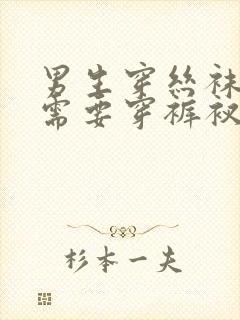 男生穿絲袜
需要穿裤衩
杉本一夫